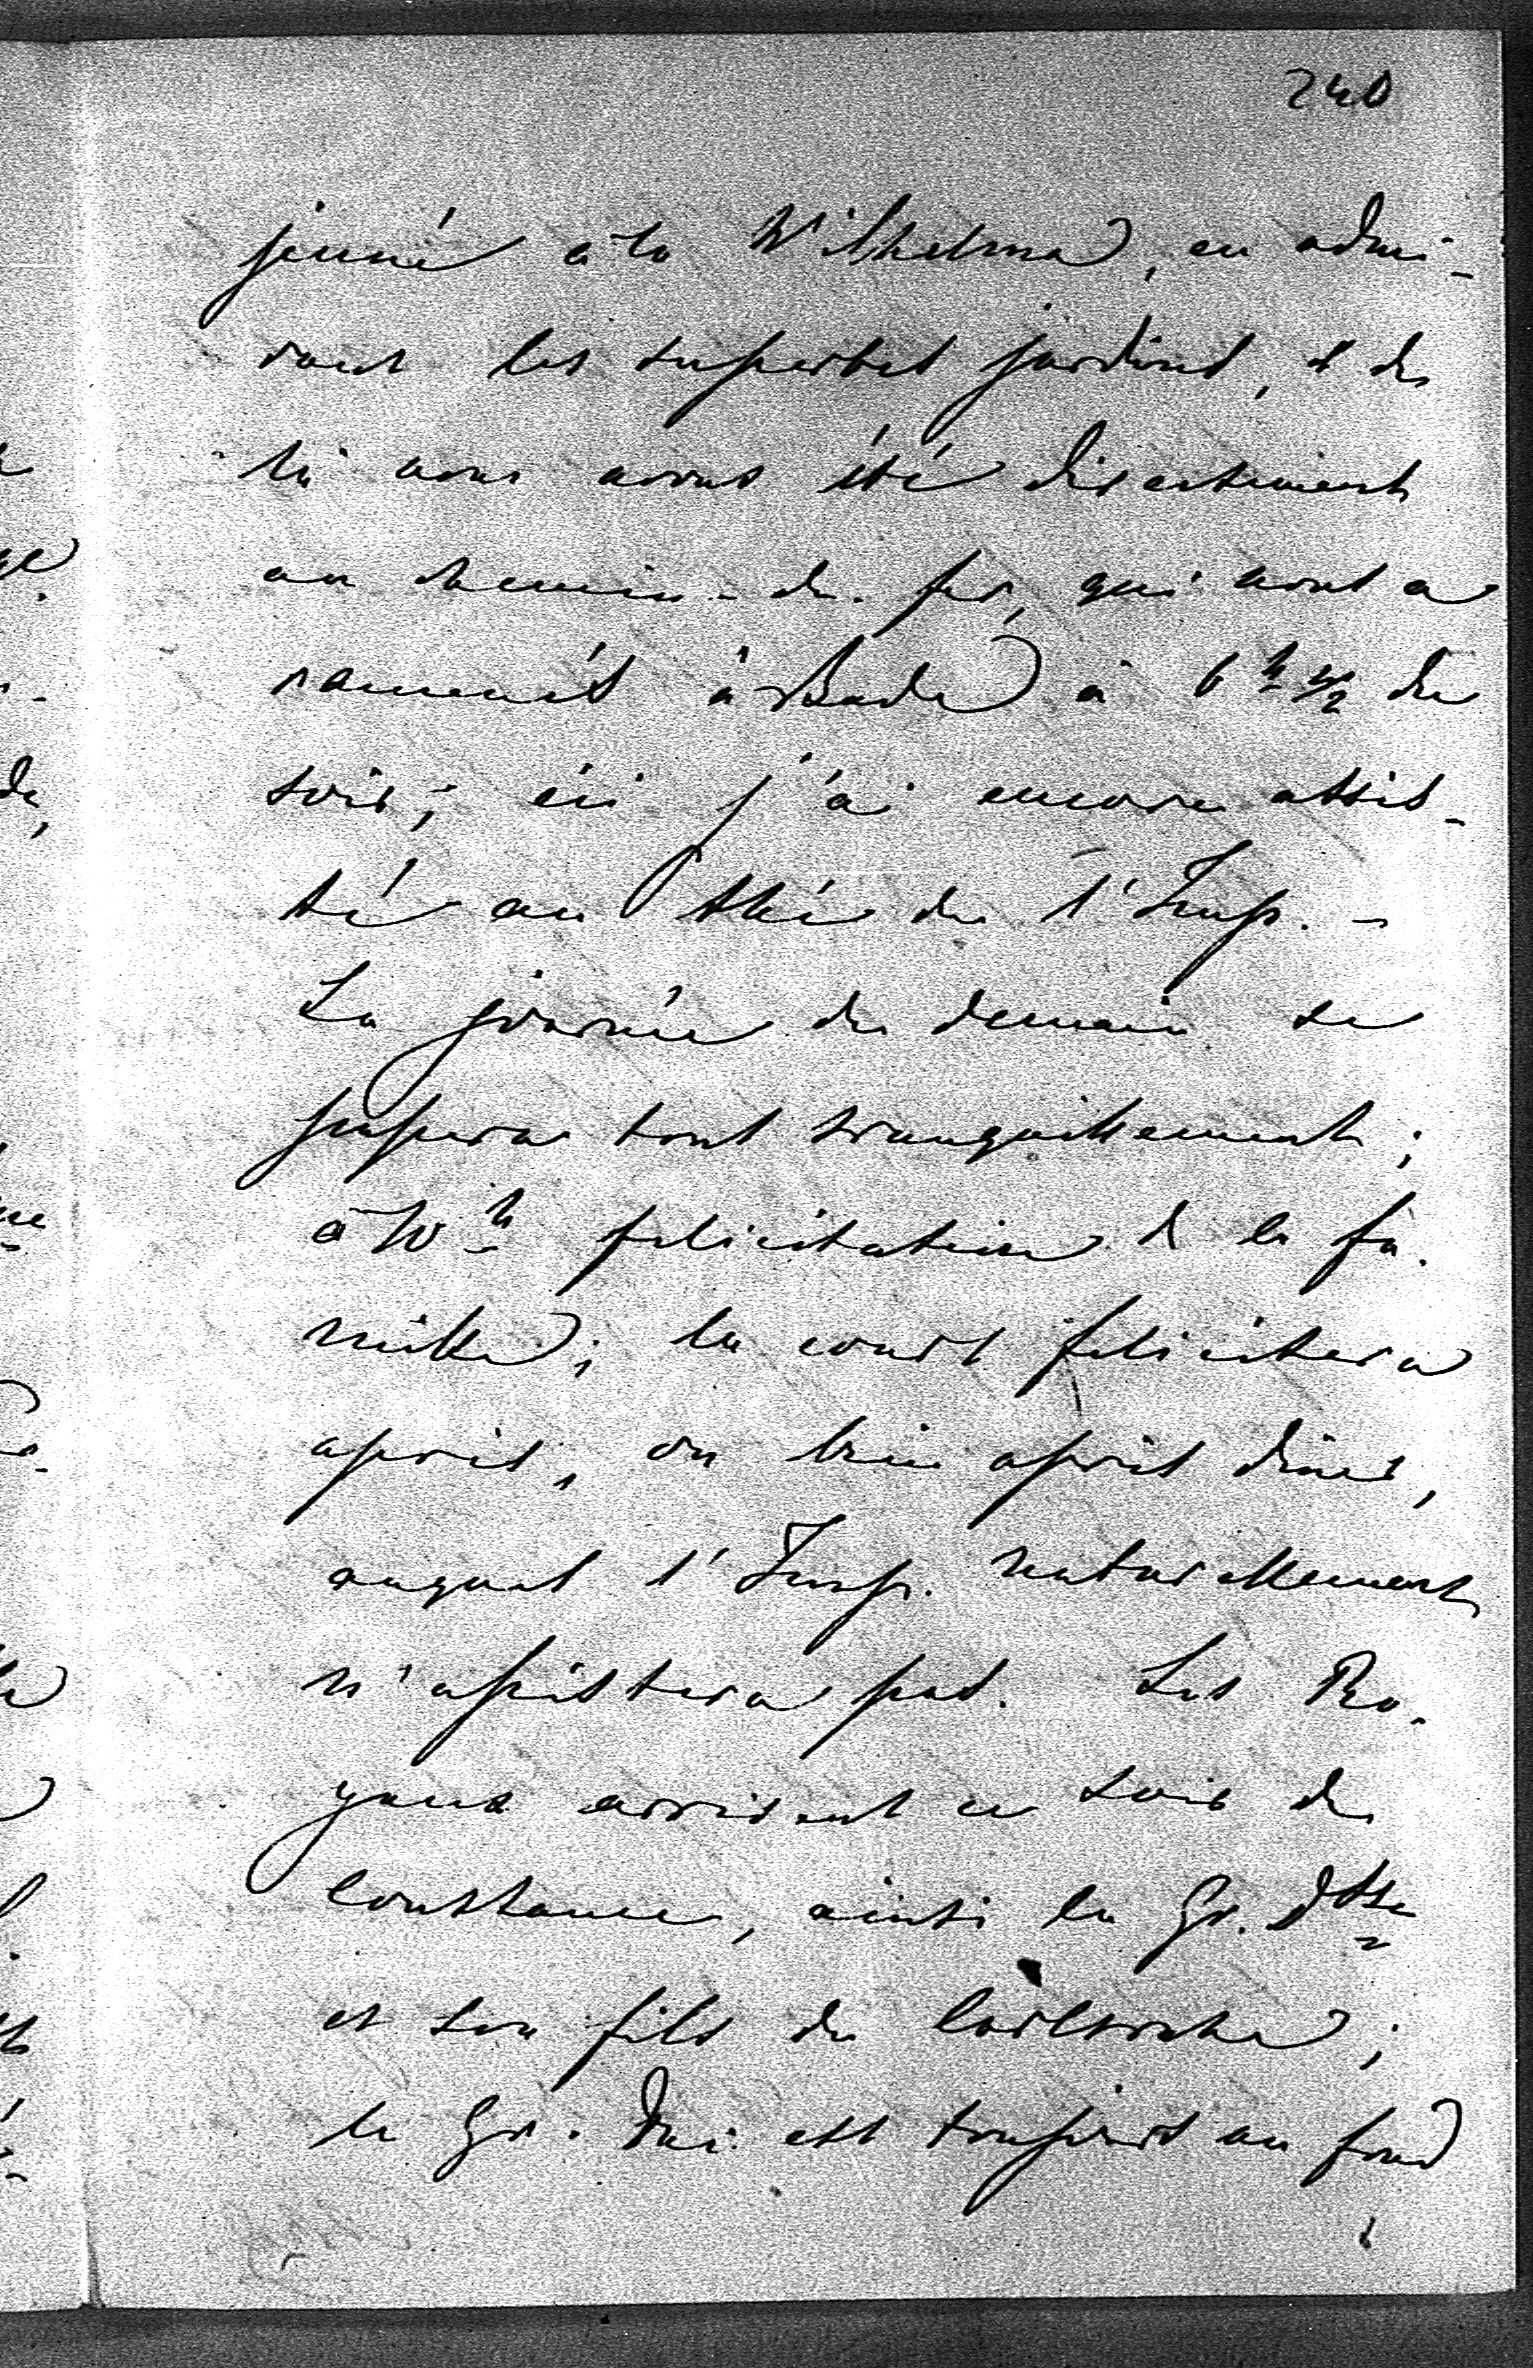 240
jeuné à la Wilhelma, en admi-
rant les superbes jardins, et de
là nous avons été directement
au chemin-de-fer, qui nous a
ramenés à Bade à 6 h 1/2 du
soir; où j'ai encore assis-
té au thé de l'Imp. -
La journée de demain se
passera tout tranquillement;
à 10 h felicitation de la fa-
mille; la court felicitera
après, ou bien après diner,
auquel l'Imp. naturellement
n'assistera pas. Les Ro-
yaux arrivent ce soir de
Constance, ainsi la Gr. Dsse
et son fils de Carlsruhe;
le Gr. Duc est toujours au fond